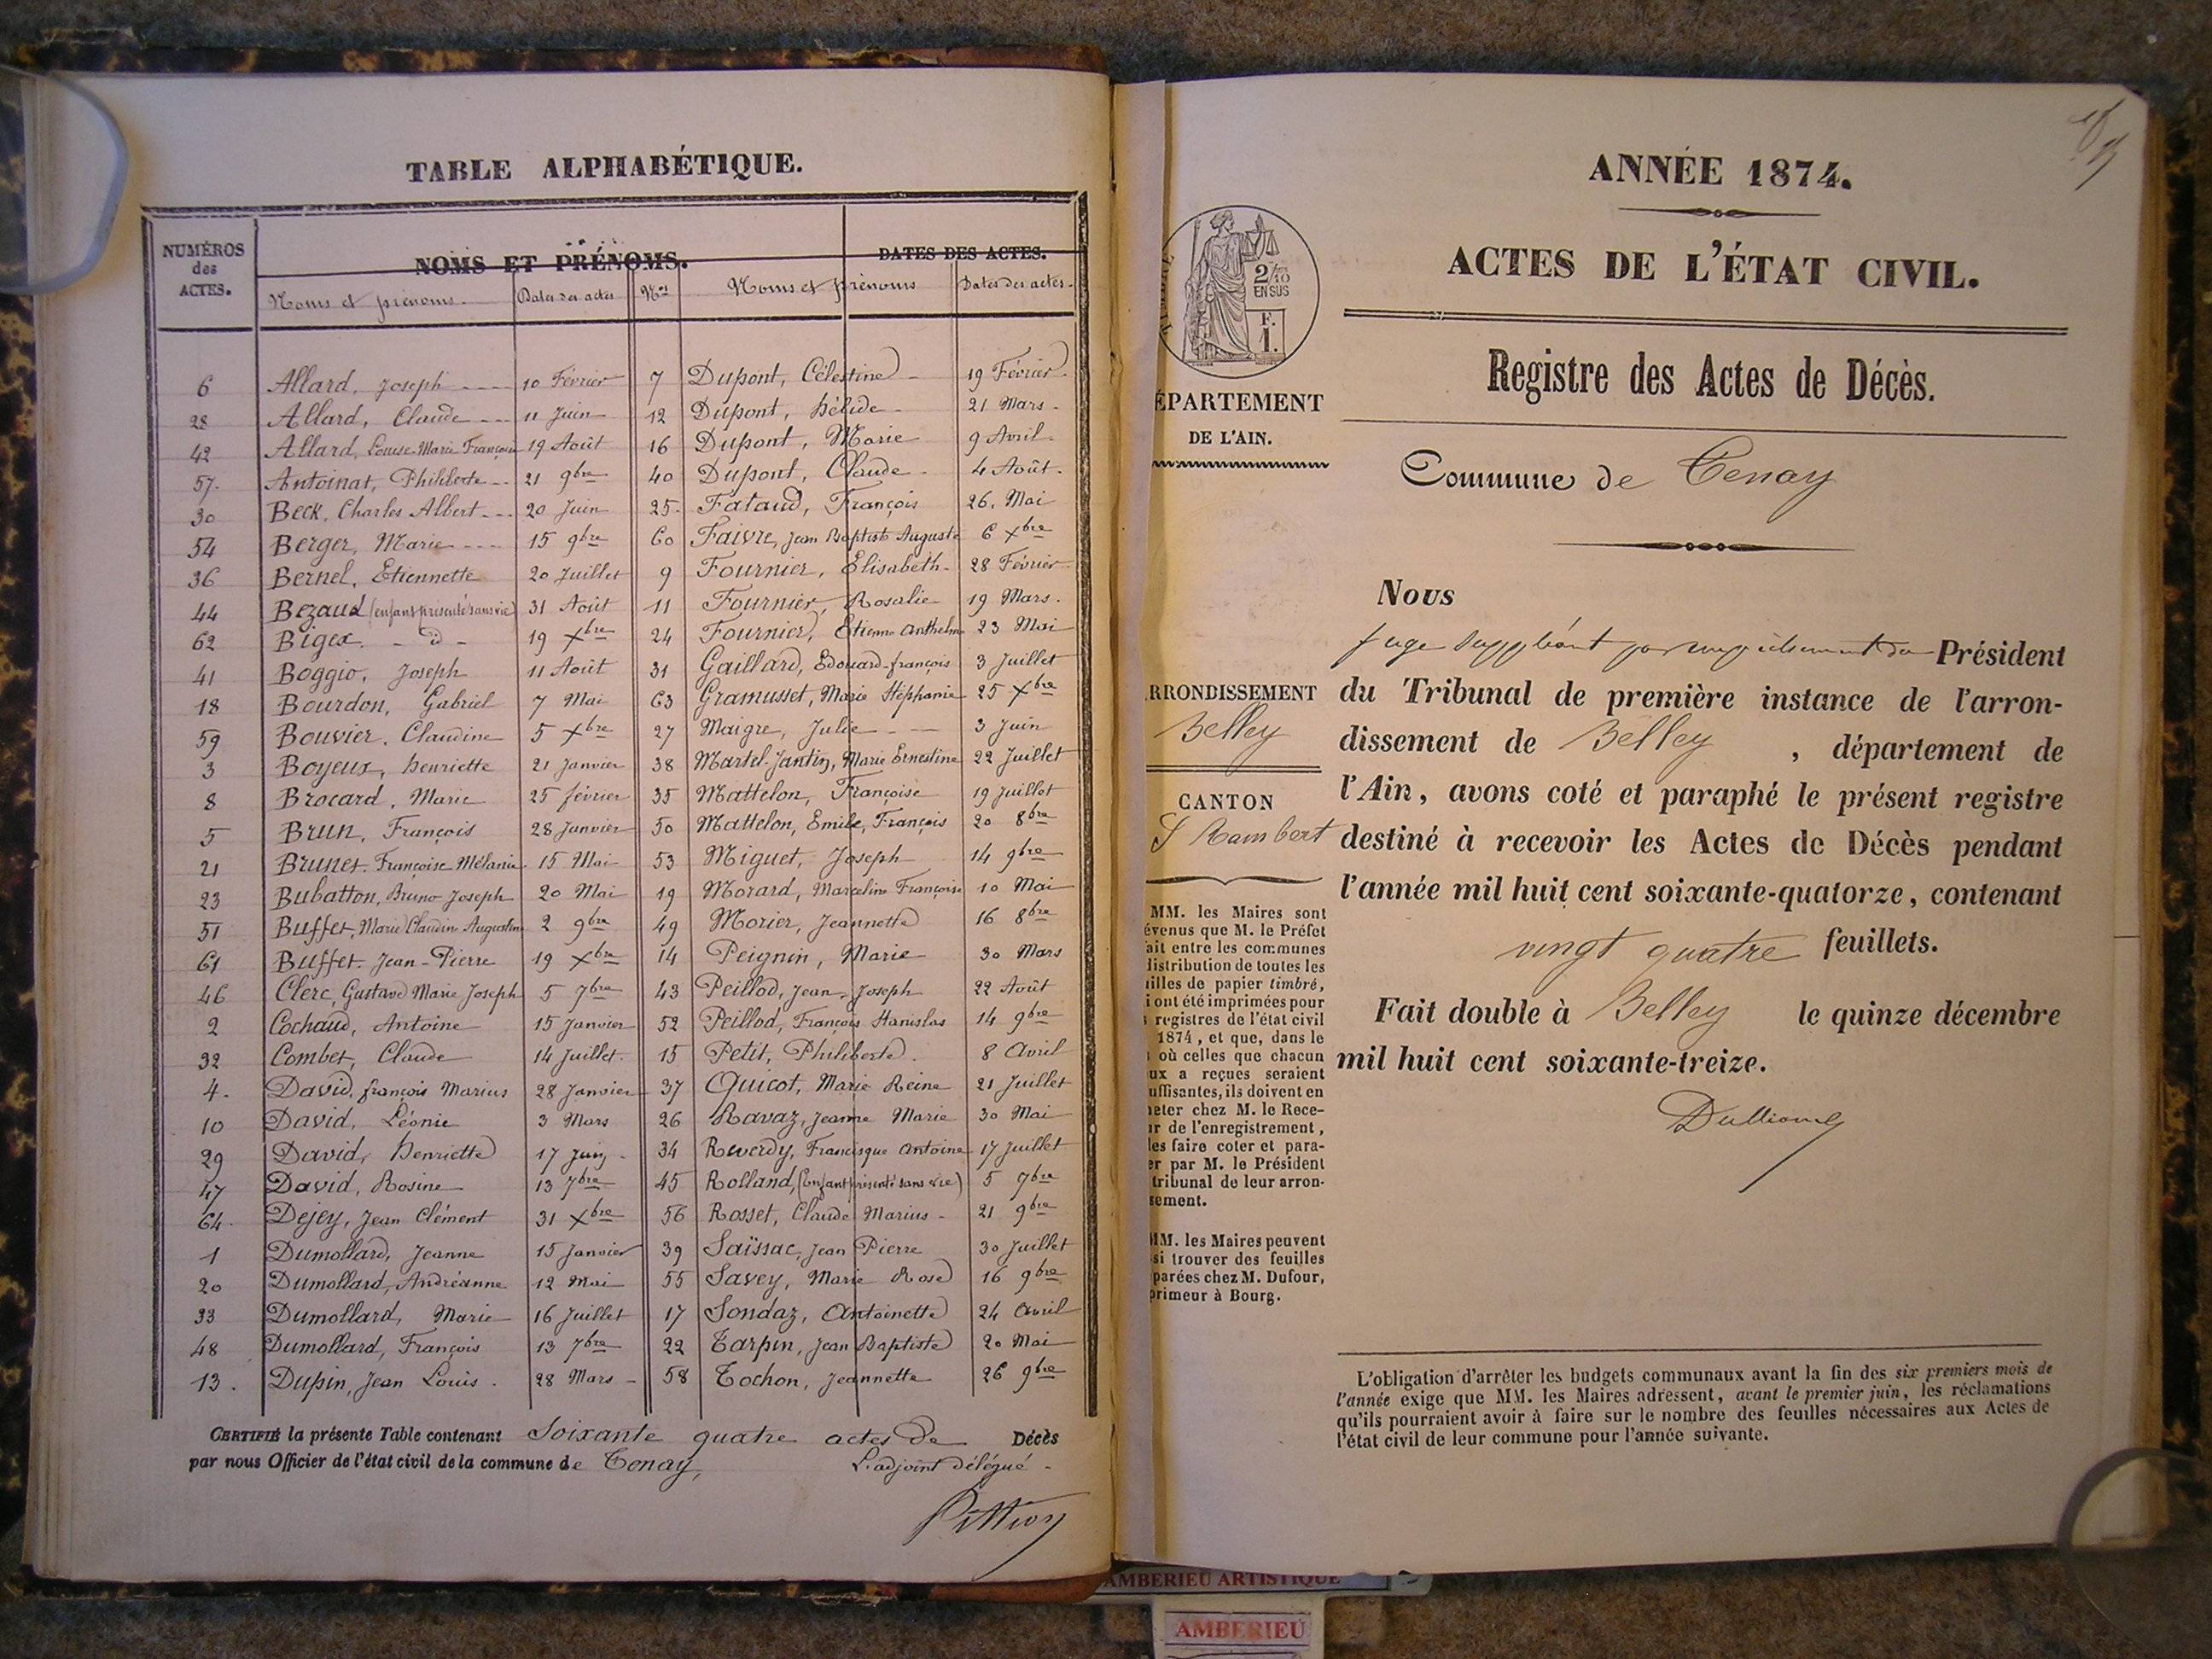 TABLE ALPHABÉTIQUE.
NUMÉROS
des
ACTES.
NOMS ET PRÉNOMS.
DATES DES ACTES.
Noms et prénoms. Dates des actes Nos Noms et prénoms Dates des actes.
6 Allard, Joseph 10 Février 7 Dupont, Célestine 19 Février
28 Allard, Claude 11 Juin 12 Dupont, hélide 21 Mars
42 Allard, Louise Marie Françoise 19 Août 16 Dupont, Marie 9 Avril
57 Antoinat, Philiberte 21 9bre 40 Dupont, Claude 4 Août
30 Beck, Charles Albert 20 Juin 25 Fataud, François 26 Mai
54 Berger, Marie 15 9bre 60 Faivre, Jean Baptiste Auguste 6 Xbre
36 Bernel, Etiennette 20 Juillet 9 Fournier, Elisabeth 28 Février
44 Bezaud (enfant présenté sans vie) 31 Août 11 Fournier, Rosalie 19 Mars
62 Bigex - d - 19 Xbre 24 Fournier, Etienne Anthelme 23 Mai
41 Boggio, Joseph 11 Août 31 Gaillard, Edouard-françois 3 Juillet
18 Bourdon, Gabriel 7 Mai 63 Gramusset, Marie Stéphanie 25 Xbre
59 Bouvier, Claudine 5 Xbre 27 Maigre, Julie 3 Juin
3 Boyeux, henriette 21 Janvier 38 Martel-Jantin, Marie Ernestine 22 Juillet
8 Brocard, Marie 25 février 35 Mattelon, Françoise 19 Juillet
5 Brun, François 28 Janvier 50 Mattelon, Emile, François 20 8bre
21 Brunet, Françoise Mélanie 15 Mai 53 Miguet, Joseph 14 9bre
23 Bubatton, Bruno Joseph 20 Mai 19 Morard, Marceline Françoise 10 Mai
51 Buffet, Marie Claudine Augustine 2 9bre 49 Morier, Jeannette 16 8bre
61 Buffet, Jean-Pierre 19 Xbre 14 Peignin, Marie 30 Mars
46 Clerc, Gustave Marie Joseph 5 7bre 43 Peillod, Jean, Joseph 22 Août
2 Cochaud, Antoine 15 Janvier 52 Peillod, François Stanislas 14 9bre
32 Combet, Claude 14 Juillet 15 Petit, Philiberte 8 Avril
4. David, françois Marius 28 Janvier 37 Quicot, Marie Reine 21 Juillet
10 David, Léonie 3 Mars 26 Ravaz, Jeanne Marie 30 Mai
29 David, henriette 17 Juin 34 Reverdy, Francisque Antoine 17 Juillet
47 David, Rosine 13 7bre 45 Rolland, (Enfant présenté sans vie) 5 7bre
64. Dejey, Jean Clément 31 Xbre 56 Rosset, Claude Marius 21 9bre
1 Dumollard, Jeanne 15 Janvier 39 Saïssac, Jean Pierre 30 Juillet
20 Dumollard, Andréanne 12 Mai 55 Savey, Marie Rose 16 9bre
33 Dumollard, Marie 16 Juillet 17 Sondaz, Antoinette 24 Avril
48 Dumollard, François 13 7bre 22 Tarpin, Jean Baptiste 20 Mai
13. Dupin, Jean Louis 28 Mars 58 Tochon, Jeannette 26 9bre
CERTIFIÉ la présente Table contenant Soixante quatre actes de Décès
par nous Officier de l'état civil de la commune de Tenay, L'adjoint délégué
Pittion
ANNÉE 1874.
ACTES DE L'ÉTAT CIVIL.
Registre des Actes de Décès.
Commune de Tenay
2/10
EN SUS
F.
1.
ÉPARTEMENT
DE L'AIN.
RRONDISSEMENT
Belley
CANTON
St Rambert
MM. les Maires sont
évenus que M. le Préfet
ait entre les communes
distribution de toutes les
illes de papier timbré,
i ont été imprimées pour
s registres de l'état civil
1874, et que, dans le
où celles que chacun
ux a reçues seraient
uffisantes, ils doivent en
heter chez M. le Rece-
ur de l'enregistrement,
les faire coter et para-
er par M. le Président
tribunal de leur arron-
sement.
MM. les Maires peuvent
si trouver des feuilles
parées chez M. Dufour,
primeur à Bourg.
Nous
juge suppléant par empêchement du Président
du Tribunal de première instance de l'arron-
dissement de Belley, département de
l'Ain, avons coté et paraphé le présent registre
destiné à recevoir les Actes de Décès pendant
l'année mil huit cent soixante-quatorze, contenant
vingt quatre feuillets.
Fait double à Belley le quinze décembre
mil huit cent soixante-treize.
L'obligation d'arrêter les budgets communaux avant la fin des six premiers mois de
l'année exige que MM. les Maires adressent, avant le premier juin, les réclamations
qu'ils pourraient avoir à faire sur le nombre des feuilles nécessaires aux Actes de
l'état civil de leur commune pour l'année suivante.
AMBERIEU ARTISTIQUE
AMBERIEU